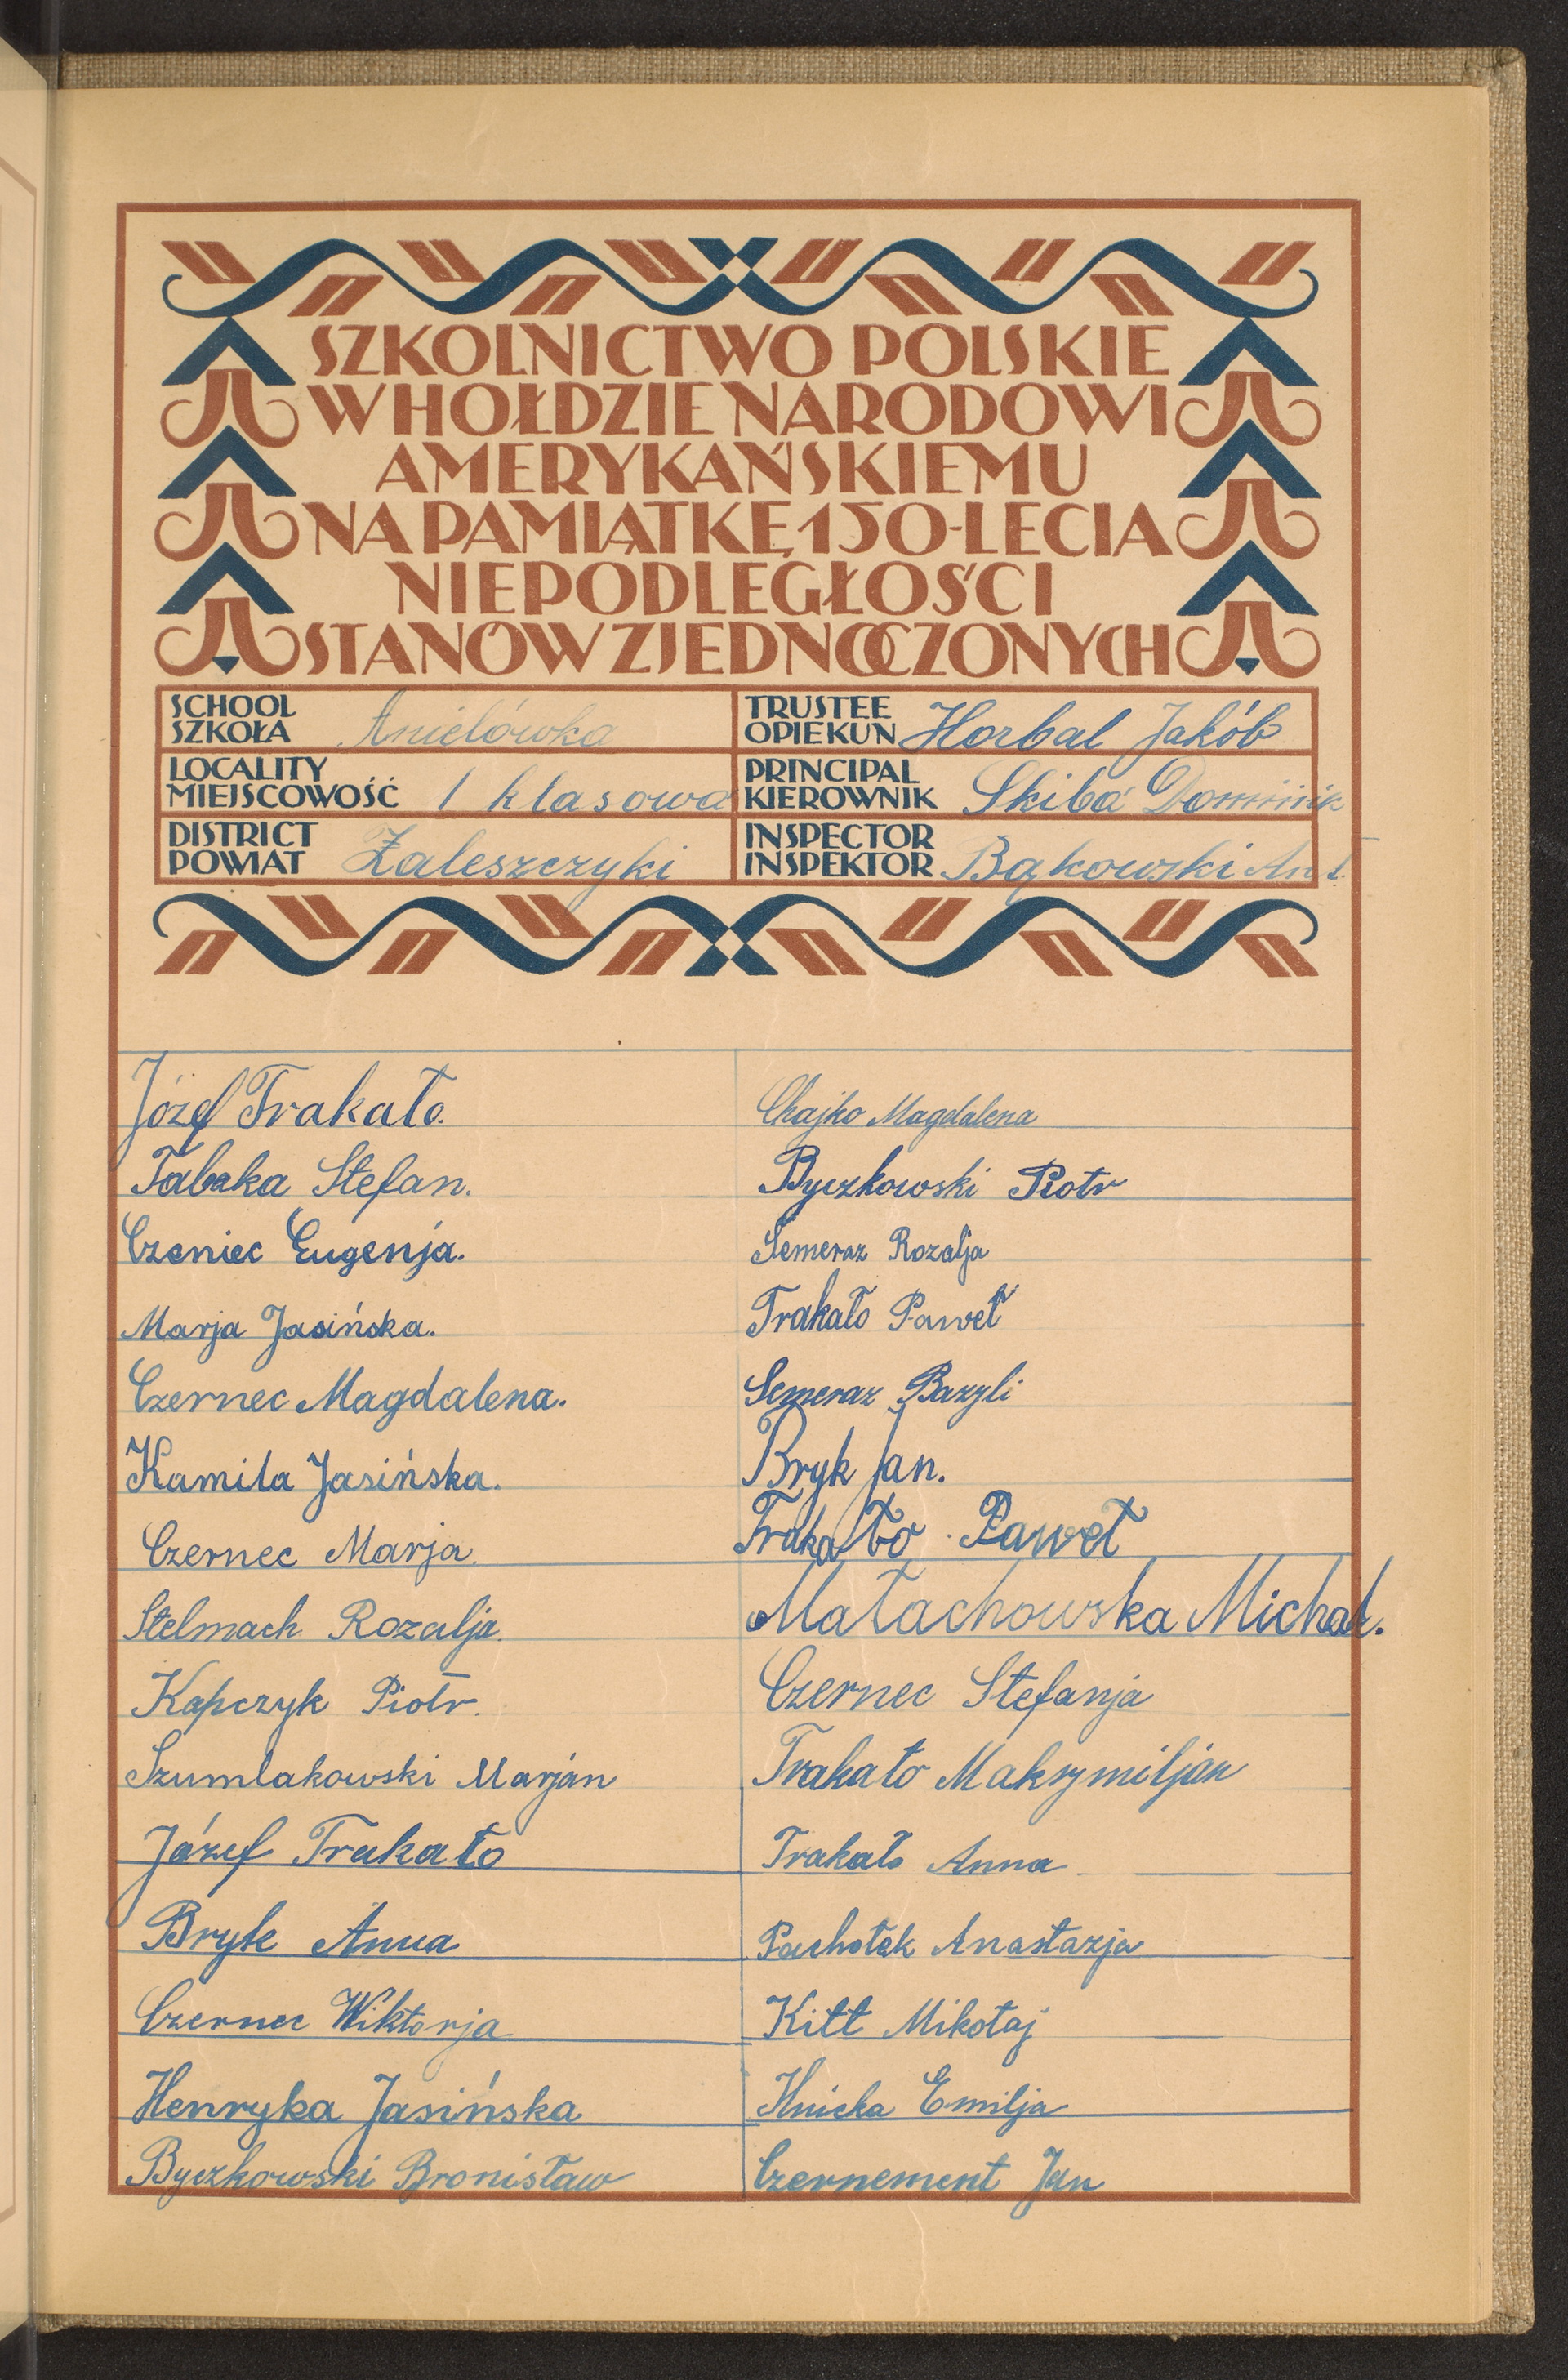 SZKOLNICTWO POLSKIE
W HOŁDZIE NARODOWI
AMERYKAŃSKIEMU
NA PAMIĄTKĘ 150-LECIA
NIEPODLEGŁOŚCI
STANÓW ZJEDNOCZONYCH
SCHOOL
SZKOŁA Anielówka
TRUSTEE
OPIEKUN Horbal Jakób
LOCALITY
MIEJSCOWOŚĆ 1 klasowa
PRINCIPAL
KIEROWNIK Skiba Dominik
DISTRICT
POWIAT Zaleszczyki
INSPECTOR
INSPEKTOR Bąkowski Ant.
Józef Trakało.
Tabaka Stefan.
Czeniec Eugenja.
Marja Jasińska.
Czernec Magdalena.
Kamila Jasińska.
Czernec Marja.
Stelmach Rozalja.
Kapczyk Piotr.
Szumlakowski Marjan
Józef Trakało
Bryk Anna
Czernec Wiktorja
Henryka Jasińska
Byczkowski Bronisław
Chajko Magdalena
Byczkowski Piotr
Semeraz Rozalja
Trakało Paweł
Semeraz Bazyli
Bryk Jan.
Trakało Paweł
Małachowska Michał.
Czernec Stefanja
Trakało Maksymiljan
Trakało Anna
Pachołek Anastazja
Kitt Mikołaj
Hnicka Emilja
Czernement Jan